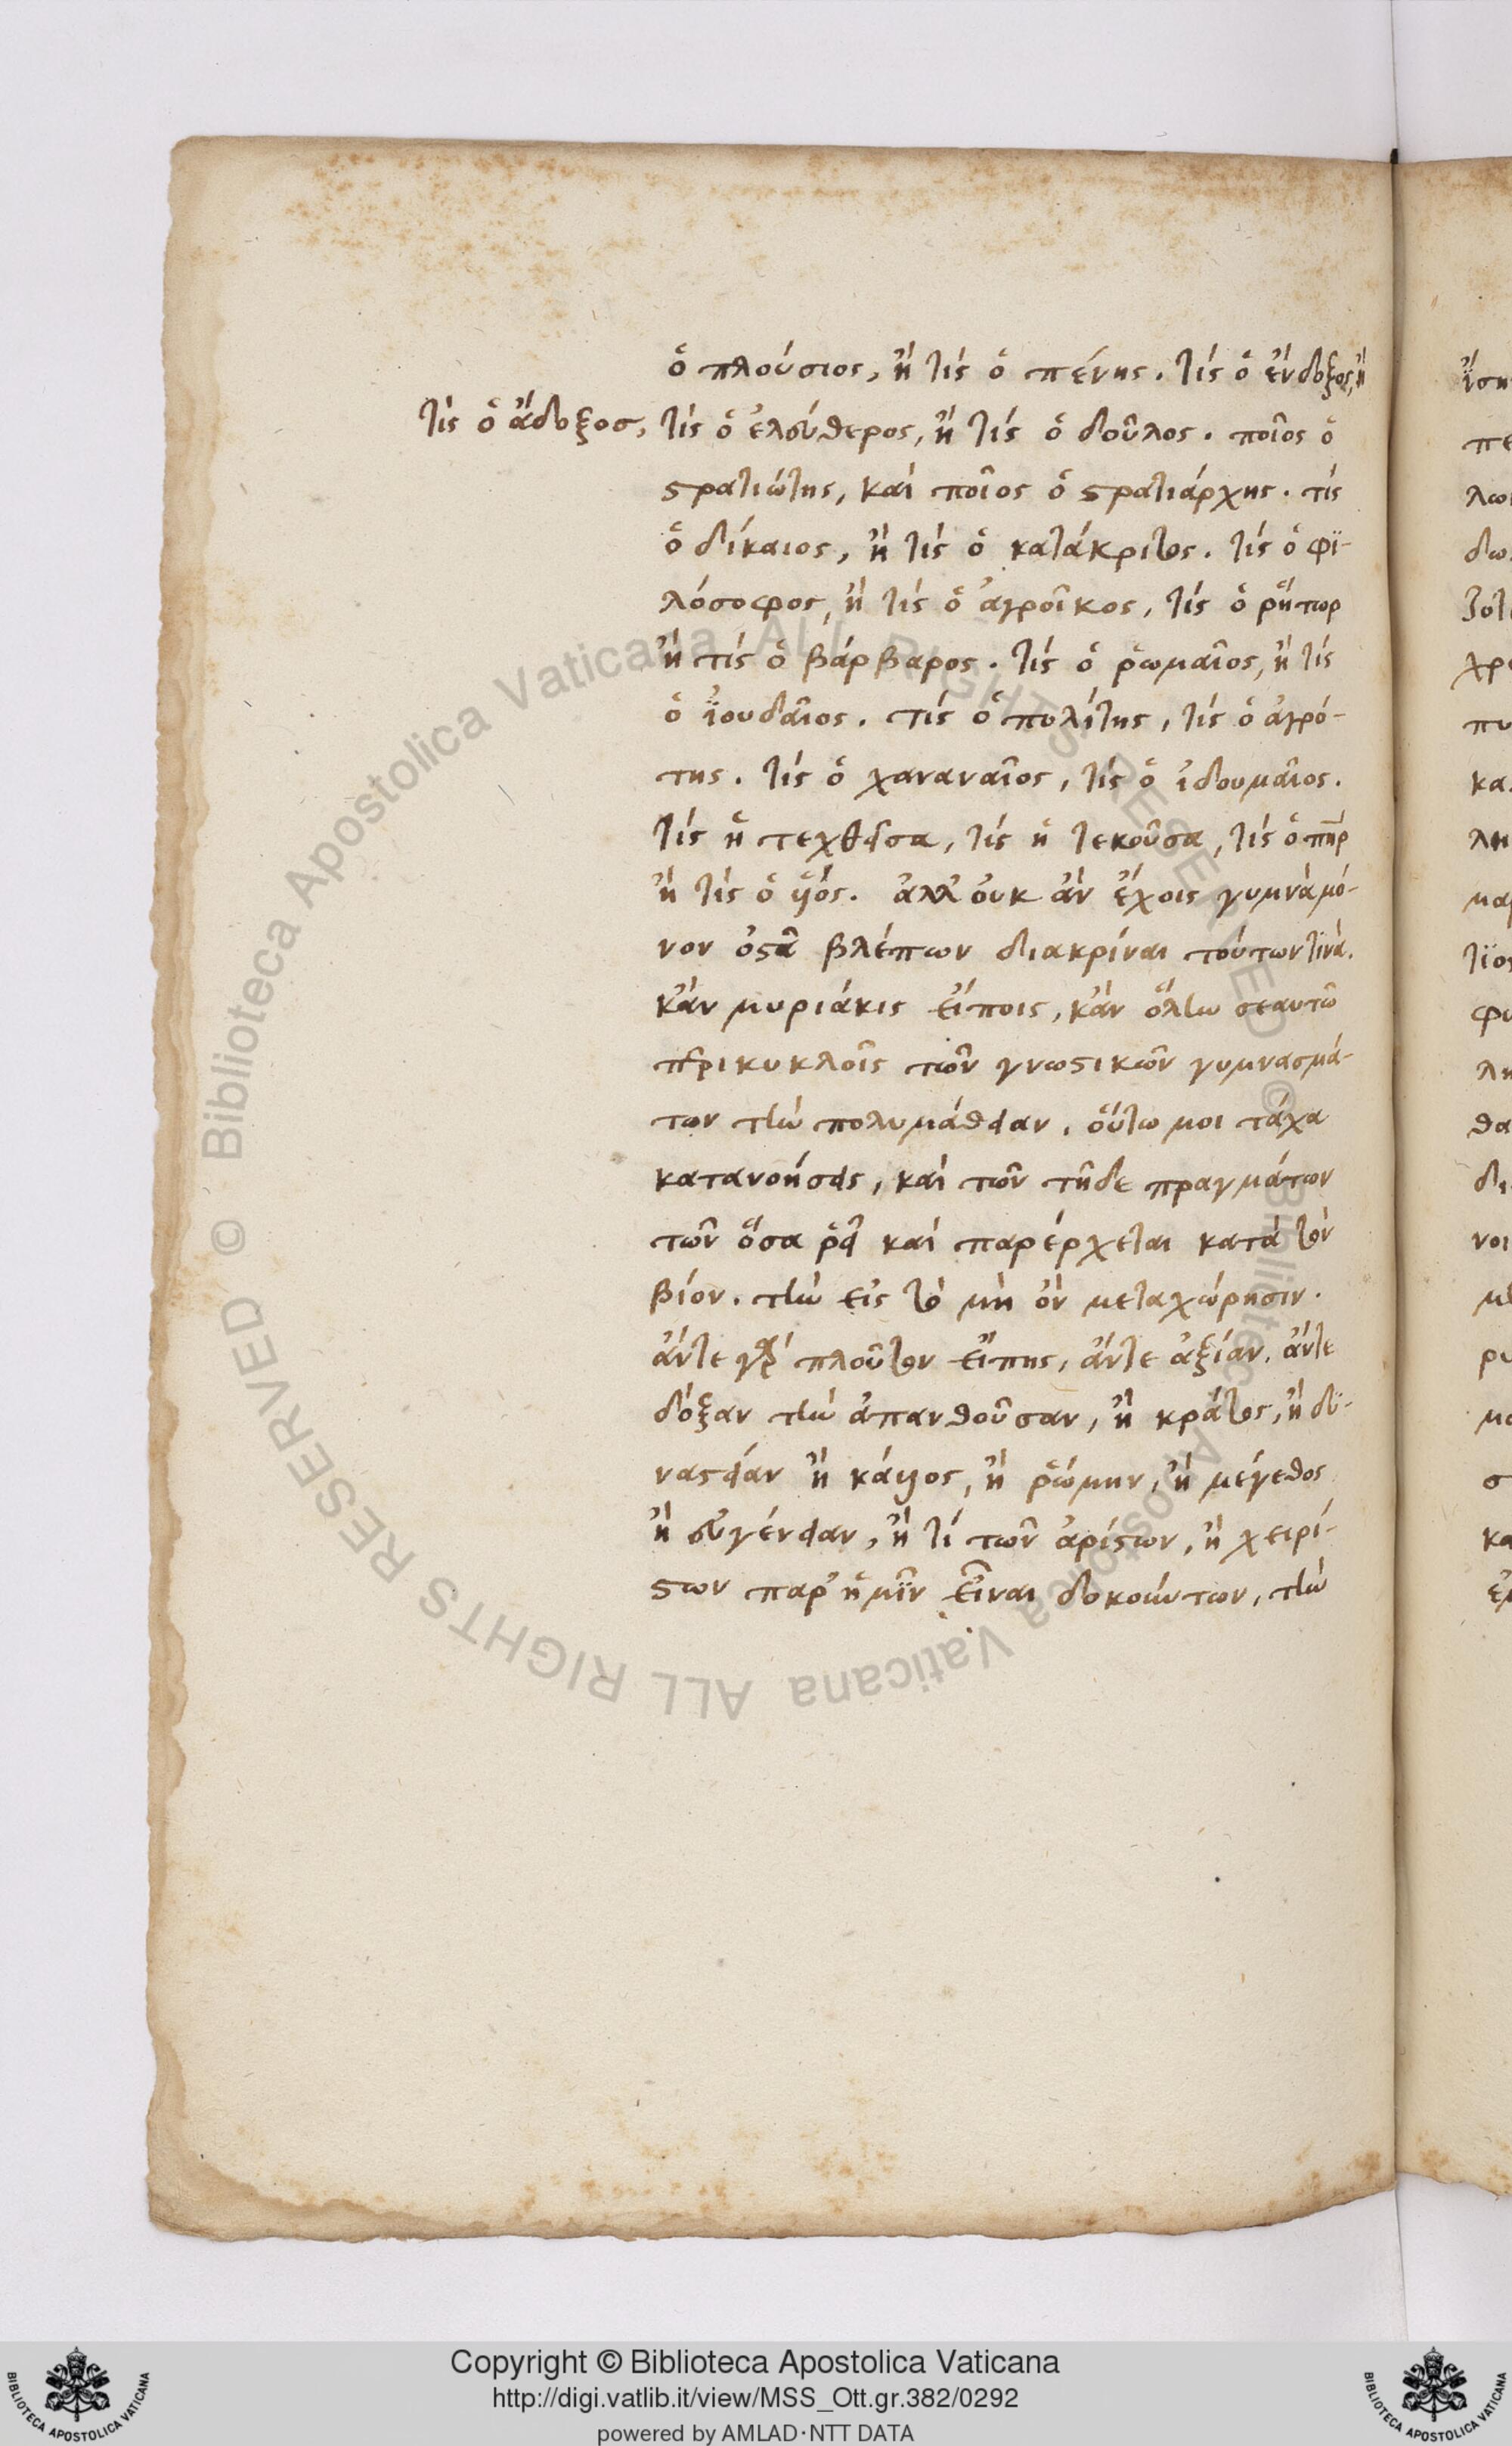 ὁ πλούσιος, ἢ τίς ὁ πένης. τίς ὁ ἔνδοξος, ἢ
τίς ὁ ἄδοξοσ, τίς ὁ ἐλεύθερος, ἢ τίς ὁ δοῦλος. ποῖος ὁ
στρατιώτης, καὶ ποῖος ὁ στρατιάρχης. τίς
ὁ δίκαιος, ἢ τίς ὁ κατάκριτος. τίς ὁ φϊ-
λόσοφος, ἢ τίς ὁ ἀγροῖκος, τίς ὁ ῥήτωρ
ἢ τίς ὁ βάρβαρος. τίς ὁ ῥωμαῖος, ἢ τίς
ὁ ϊουδαῖος. τίς ὁ πολίτης, τίς ὁ ἀγρό-
της. τίς ὁ χαναναῖος, τίς ὁ ἰδουμαῖος.
τίς ἡ τεχθεῖσα, τίς ἡ τεκοῦσα, τίς ὁ πηρ
ἢ τίς ὁ ϋἱός. ἀλλ' οὐκ ἂν ἔχοις γυμνὰ μό-
νον ὀστᾶ βλέπων διακρίναι τούτων τϊνά.
κἂν μυριάκις εἴποις, κἂν ὅλτω σεαυτῶ
περικυκλοῖς τῶν γνωστικῶν γυμνασμά-
των τὴν πολυμάθειαν. οὕτω μοι τάχα
κατανοήσεις, καὶ τῶν τῆδε πραγμάτων
τῶν ὅσα ῥεῖ καὶ παρέρχεται κατὰ τὸν
βίον. τὴν εἰς τὸ μὴ ὂν μεταχώρησιν.
ἄντε γὰρ πλοῦτον εἴπης, ἄντε ἀξίαν. ἄντε
δόξαν τὴν ἀπανθοῦσαν, ἢ κράτος, ἢ δϋ-
ναστείαν ἢ κάλλος, ἢ ῥώμην, ἢ μέγεθος
ἢ εὐγένειαν, ἢ τί τῶν ἀρίστων, ἢ χειρί-
στων παρ' ἡμῖν εἶναι δοκούντων, τὴν
Copyright © Biblioteca Apostolica Vaticana
http://digi.vatlib.it/view/MSS_Ott.gr.382/0292
powered by AMLAD·NTT DATA